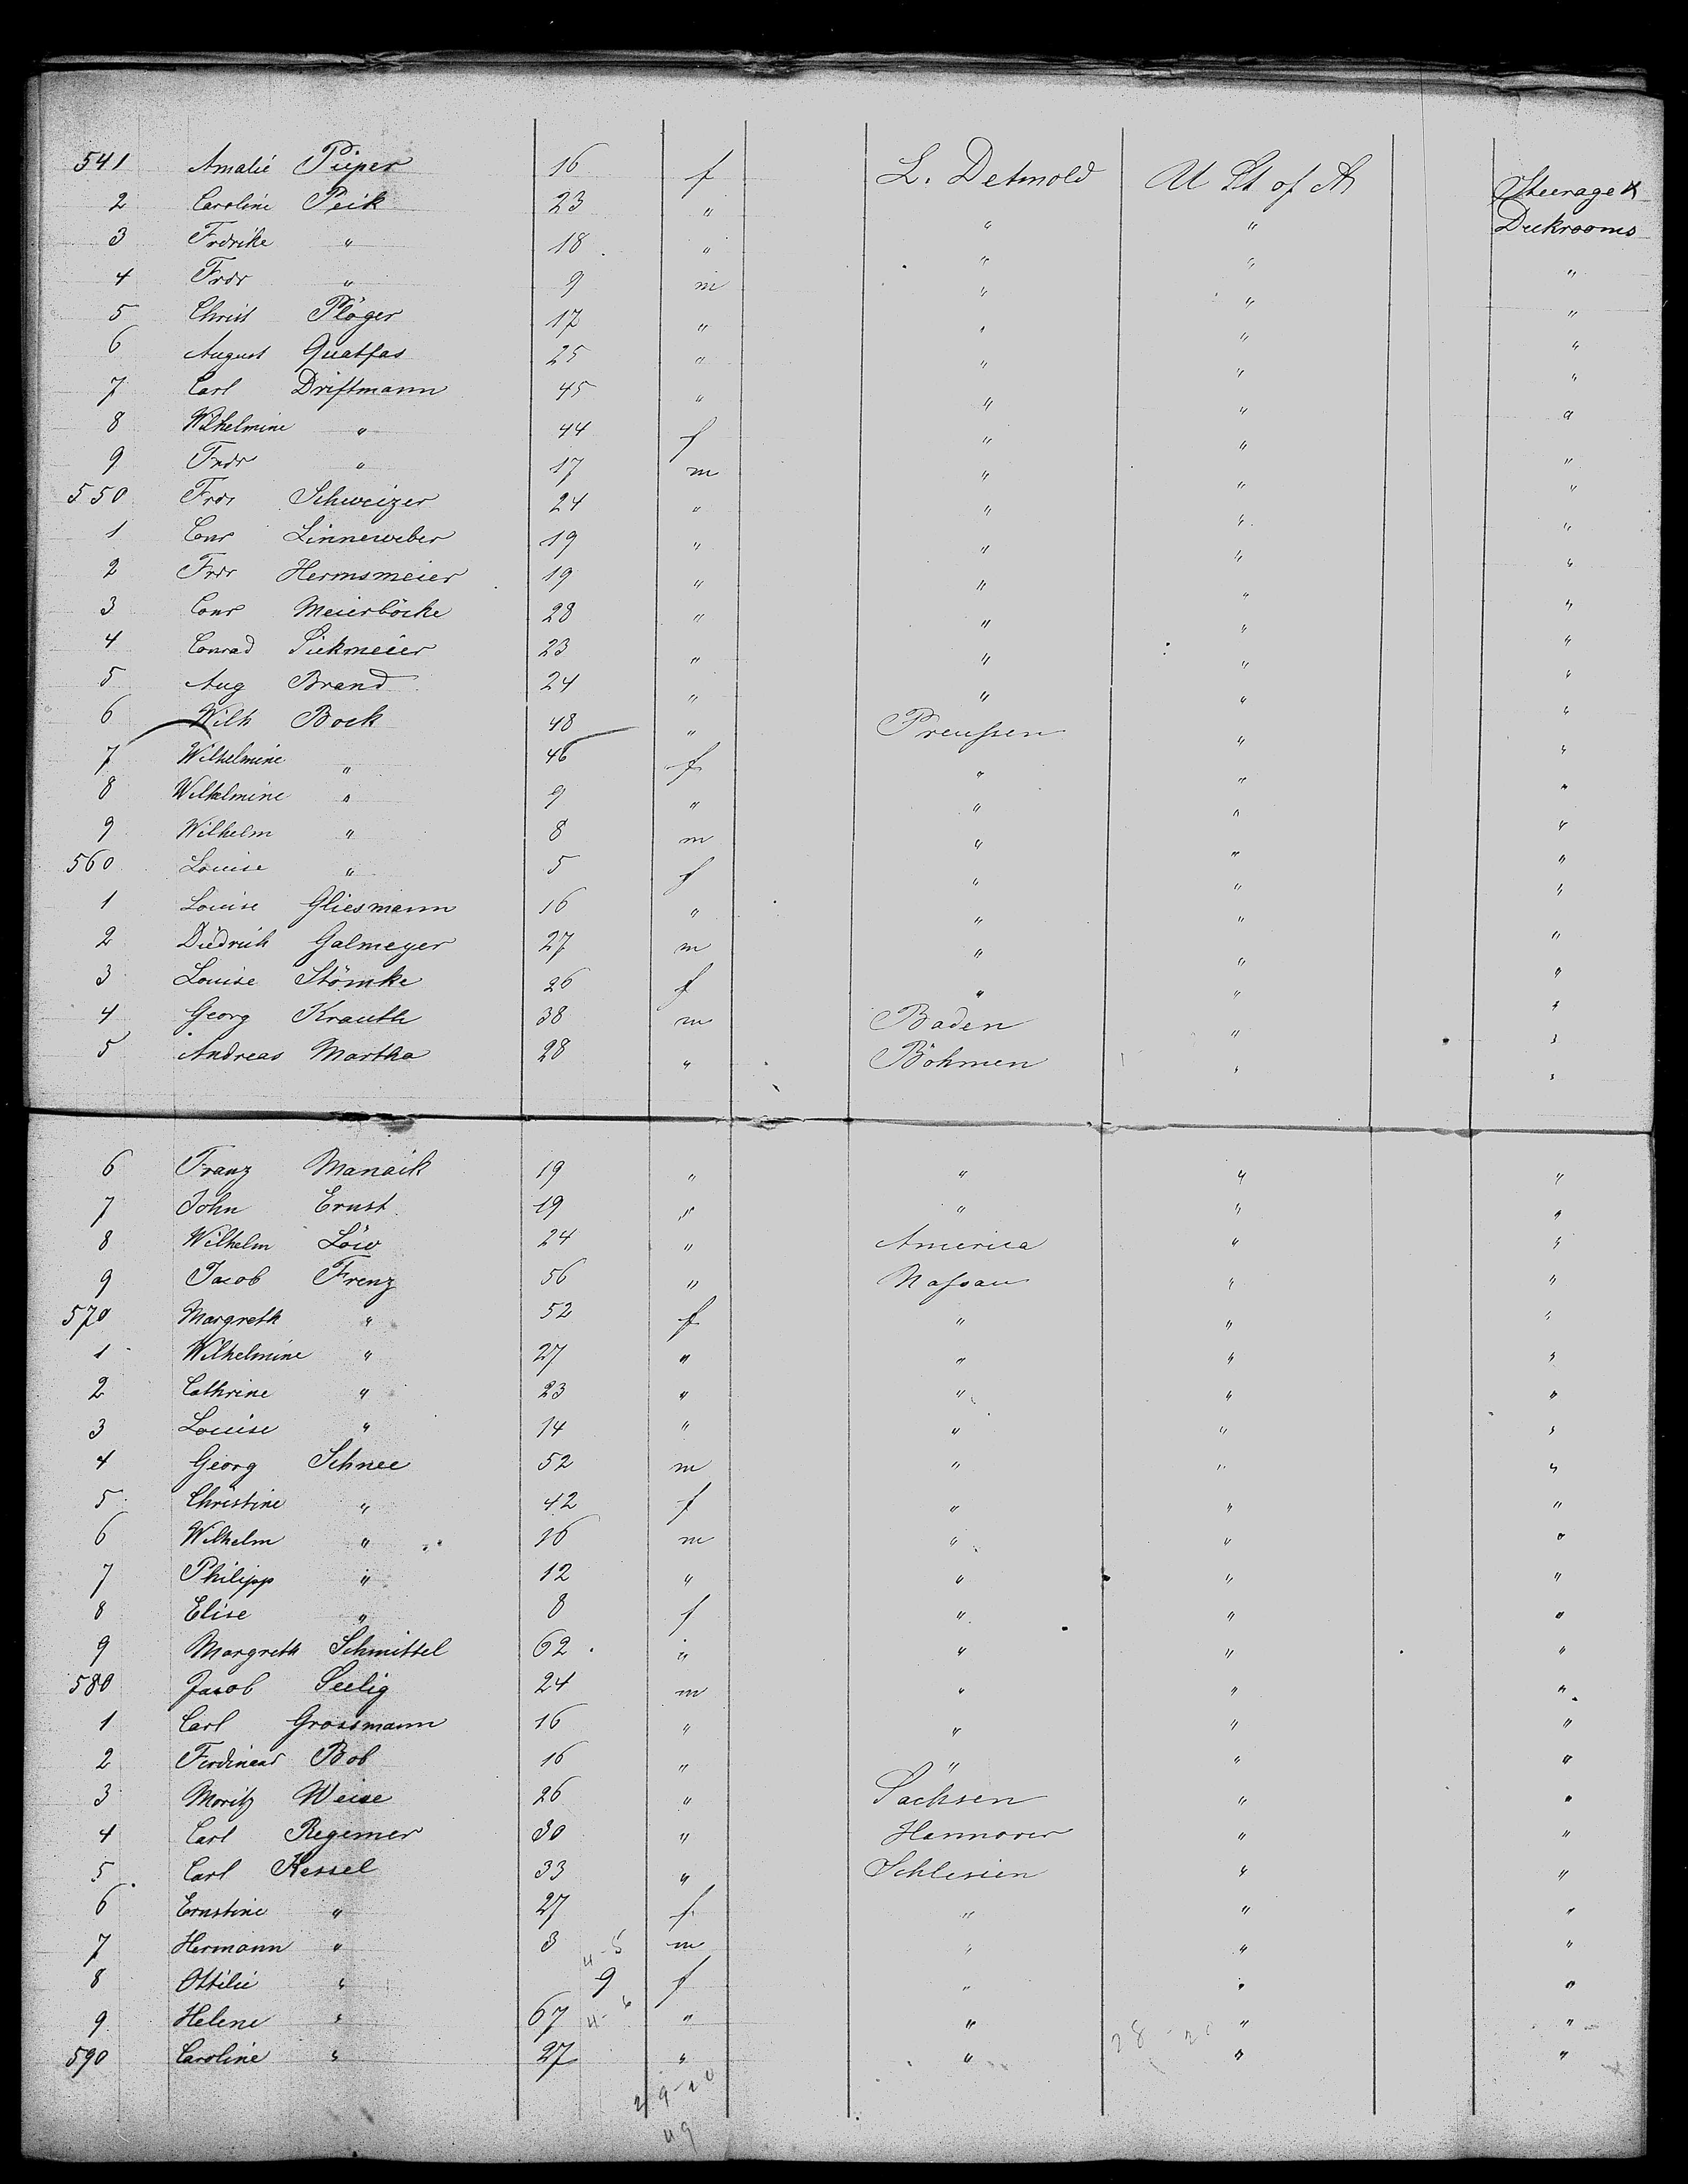 541 Amalie Pieper 16 f L. Detmold U St of A Steerage &
2 Caroline Peik 23 " " " Deckrooms
3 Frdrike " 18 " " " "
4 Frdr " 9 m " " "
5 Christ Plöger 17 " " " "
6 August Quatfas 25 " " " "
7 Carl Driftmann 45 " " " "
8 Wilhelmine " 44 f " " "
9 Frdr " 17 m " " "
550 Frdr Schweizer 24 " " " "
1 Conr Linneweber 19 " " " "
2 Frdr Hermsmeier 19 " " " "
3 Conr Meierböcke 28 " " " "
4 Conrad Siekmeier 23 " " " "
5 Aug Brand 24 " " " "
6 Wilh Bock 48 " Preussen " "
7 Wilhelmine " 46 f " " "
8 Wilhelmine " 9 " " " "
9 Wilhelm " 8 m " " "
560 Louise " 5 f " " "
1 Louise Gliesmann 16 " " " "
2 Diedrich Galmeyer 27 m " " "
3 Louise Stömke 26 f " " "
4 Georg Krauth 38 m Baden " "
5 Andreas Martha 28 " Böhmen " "
6 Franz Manaik 19 " " " "
7 John Ernst 19 " " " "
8 Wilhelm Löw 24 " America " "
9 Jacob Frenz 56 " Nassau " "
570 Margreth " 52 f " " "
1 Wilhelmine " 27 " " " "
2 Cathrine " 23 " " " "
3 Louise " 14 " " " "
4 Georg Schnee 52 m " " "
5 Christine " 42 f " " "
6 Wilhelm " 16 m " " "
7 Philipp " 12 " " " "
8 Elise " 8 f " " "
9 Margreth Schmittel 62 " " " "
580 Jacob Seelig 24 m " " "
1 Carl Grossmann 16 " " " "
2 Ferdinand Bob 16 " " " "
3 Moritz Weise 26 " Sachsen " "
4 Carl Regemer 30 " Hannover " "
5 Carl Kessel 33 " Schlesien " "
6 Ernstine " 27 f " " "
7 Hermann " 3 m " " "
8 Ottilie " 9 f " " "
9 Helene " 67 " " " "
590 Caroline " 27 " " " "